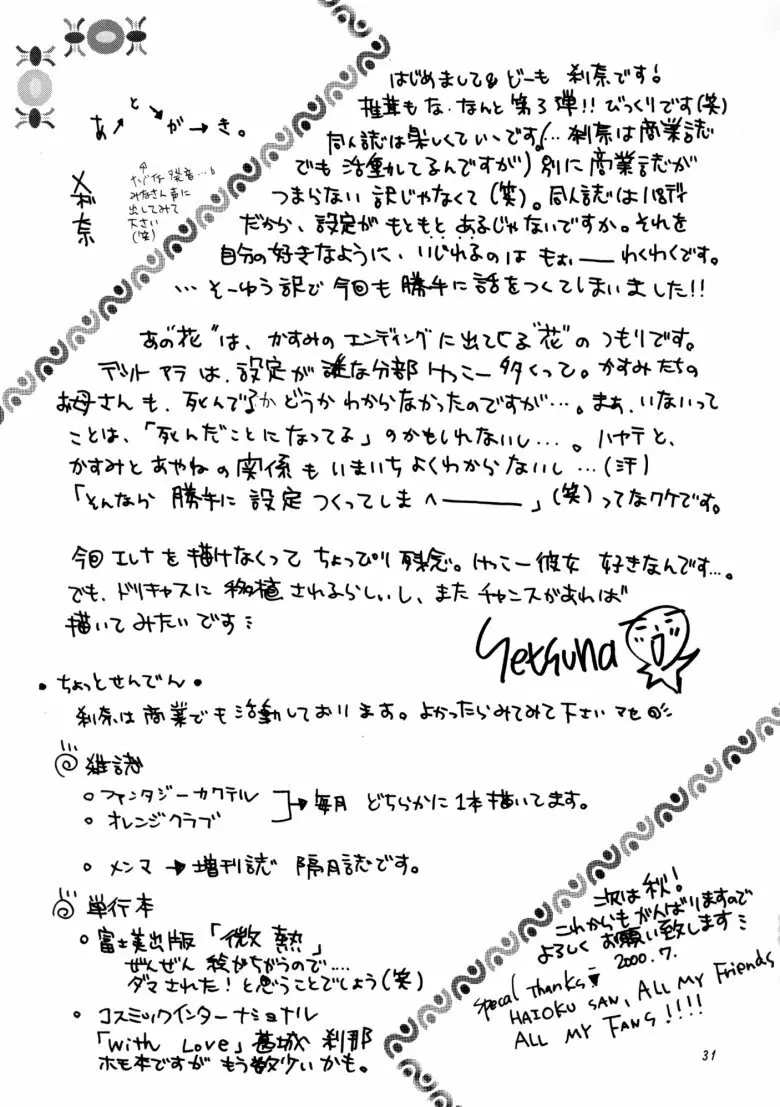 あとがき。
刹奈
みなさん声に
出してみて
下さい
(笑)
はじめまして&どーも 刹奈です!
椎茸もな、なんと第3弾!! びっくりです(笑)
同人誌は楽しくていいです!(…刹奈は商業誌
でも活動してるんですが) 別に商業誌が
つまらない訳じゃなくて(笑)。同人誌はパロディ
だから、設定がもともとあるじゃないですか。それを
自分の好きなように、いじれるのは もぉぃーわくわくです。
…そーゆう訳で今回も勝手に話をつくてしまいました!!
あの“花”は、かすみのエンディングに出てくる“花”のつもりです。
デットアラは、設定が謎な分部けっこー多くって。かすみたちの
お母さんも、死んでるかどうかわからなかったのですが…。まぁ、いないって
ことは、「死んだことになってる」のかもしれないし…。ハヤテと、
かすみとあやねの関係もいまいちよくわからないし…(汗)
「そんなら 勝手に 設定 つくってしまへー」(笑)ってなワケです。
今回エレナを描けなくってちょっぴり残念。けっこー彼女 好きなんです…。
でも、ドリキャスに移植されるらしいし、またチャンスがあれば
描いてみたいです
Setsuna
・ちょっとせんでん・
刹奈は商業でも活動しております。よかったらみてみて下さいマセ
雑誌
○ファンタジーカクテル
○オレンジクラブ
→毎月 どちらかに1本描いてます。
○メンマ→増刊誌 隔月誌です。
単行本
○富士美出版「微熱」
ぜんぜん絵がちがうので…
ダマされた!と思うことでしょう(笑)
○コスミックインターナショナル
「with Love」葛城 刹那
ホモ本ですが もう数少いかも。
次は秋!
これからもがんばりますので
よろしくお願い致します
2000.7.
Specal Thanks
HAIOKU SAN, ALL MY Friends
ALL MY FANS!!!!
31